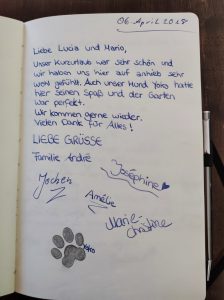 06 April 2018
Liebe Lucia und Mario,
Unser Kurzurlaub war sehr schön und
wir haben uns hier auf anhieb sehr
wohl gefühlt. Auch unser Hund Yoko hatte
hier seinen Spaß und der Garten
war perfekt.
Wir kommen gerne wieder.
Vielen Dank für Alles!
LIEBE GRÜSSE
Familie André
Joséphine
Jochen
Amélie
Marie-
Christine
Yoko